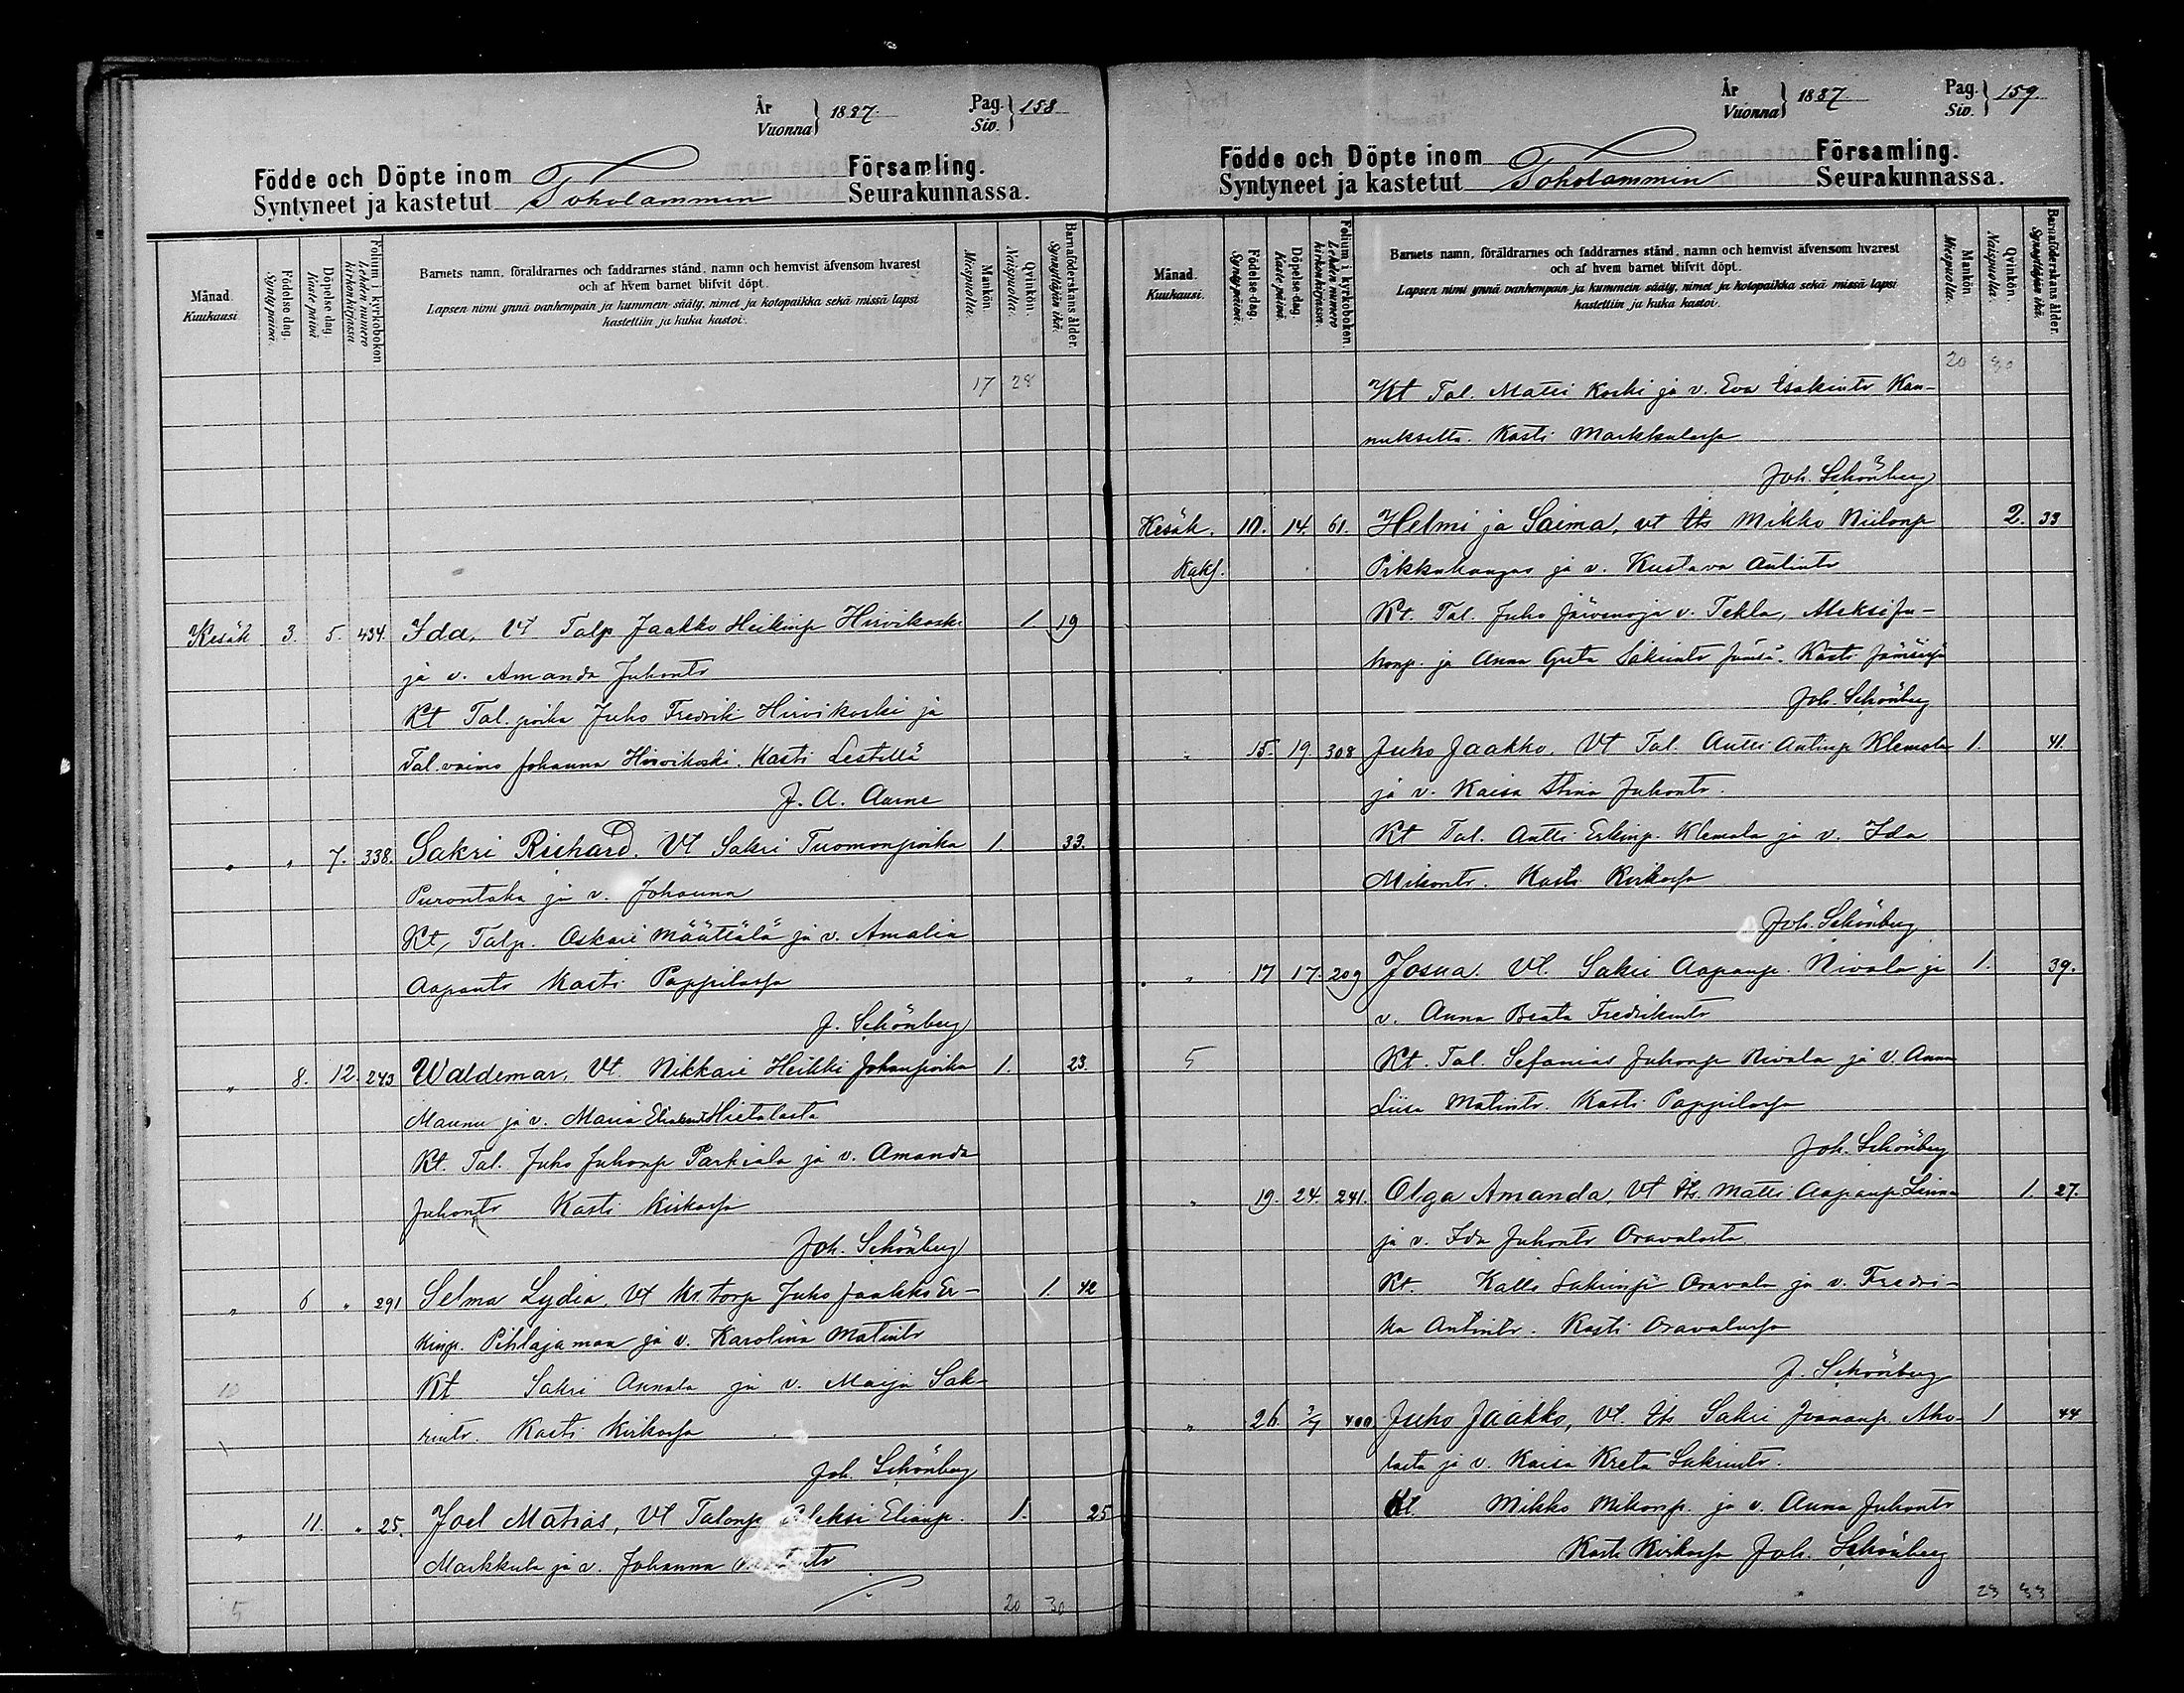 År
Vuonna } 1887.
Pag.
Siv. } 158
Födde och Döpte inom Församling.
Syntyneet ja kastetut Toholammin Seurakunnassa.
Månad.
Kuukausi
Födelse dag.
Synty päivä.
Döpelse dag.
Kaste päivä
Folium i kyrkoboken
Lehden numero kirkonkirjassa
Barnets namn, föräldrarnes och faddrarnes stånd, namn och hemvist äfvensom hvarest
och af hvem barnet blifvit döpt.
Lapsen nimi ynnä vanhempain ja kummein sääty, nimet ja kotopaikka sekä missä lapsi
kastettiin ja kuka kastoi.
Mankön.
Miespuolia.
Qvinkön.
Naispuolia.
Barnaföderskans ålder.
Synnyttäjän ikä.
17 28
Kesäk 3. 5. 434. Ida, Vt Talp Jaakko Heikinp Hirvikoski 1 19
ja v. Amanda Juhontr
Kt Tal. poika Juho Fredrik Hirvikoski ja
Tal. vaimo Johanna Hirvikoski. Kasti Lestillä
J. A. Aarne
" " 7. 338. Sakri Richard. Vt Sakri Tuomonpoika 1. 33.
Purontaka ja v. Johanna
Kt, Talp. Oskari Määttälä ja v. Amalia
Aapontr Kasti Pappilassa
J. Schönberg
" 8. 12. 243 Waldemar, Vt. Nikkari Heikki Johanpoika 1. 23.
Maunu ja v. Maria Hietalasta
Kt. Tal. Juho Juhonp Parkiala ja v. Amanda
Juhontr Kasti Kirkossa
Joh. Schönberg
" 6 " 291 Selma Lydia, Vt Kr. torp Juho Jaakko Er- 1. 42
kinp. Pihlajamaa ja v. Karolina Matintr
10 Kt Sakri Annala ja v. Maija Sak-
rintr. Kasti Kirkossa
Joh. Schönberg
" 11. " 25. Joel Matias, Vt Talonp Aleksi Elianp. 1. 25
Markkula ja v. Johanna
5 20 30
År
Vuonna } 1887.
Pag.
Siv. } 159.
Födde och Döpte inom Församling.
Syntyneet ja kastetut Toholammin Seurakunnassa.
Månad.
Kuukausi.
Födelse-dag.
Synty päivä.
Döpelse dag.
Kaste päivä.
Folium i kyrkoboken.
Lehden numero kirkonkirjassa.
Barnets namn, föräldrarnes och faddrarnes stånd, namn och hemvist äfvensom hvarest
och af hvem barnet blifvit döpt.
Lapsen nimi ynnä vanhempain ja kummein sääty, nimet ja kotopaikka sekä missä lapsi
kastettiin ja kuka kastoi.
Mankön.
Miespuolia.
Qvinkön.
Naispuolia.
Barnaföderskans ålder.
Synnyttäjän ikä.
20 30
Kt Tal. Matti Koski ja v. Eva Esakintr Kan-
nuksetta. Kasti Markkulassa
Joh. Schönberg
Kesäk. 10. 14. 61. Helmi ja Saima, vt its Mikko Niilonp 2. 33
Kaks. Pikkukangas ja v. Kustava Antintr
Kt. Tal. Juho Järvenoja v. Tekla, Aleksi Ju-
honp. ja Anna Greta Sakrintr Jämsä. Kasti Jämsässä
Joh. Schönberg
" 15. 19. 308 Juho Jaakko. Vt Tal. Antti Antinp Klemola 1. 41.
ja v. Kaisa Stina Juhontr.
Kt Tal. Antti Erkinp. Klemola ja v. Ida
Mikontr. Kasti Kirkossa
Joh. Schönberg
" 17 17. 209 Josua. Vt. Sakri Aapanp. Nivala ja 1. 39.
v. Anna Beata Fredrikintr
5 Kt. Tal. Sefanias Juhonp Nivala ja v. Anna
Liisa Matintr. Kasti Pappilassa
Joh. Schönberg
" 19. 24. 241. Olga Amanda, Vt its. Matti Aapanp Linna 1. 27.
ja v. Ida Juhontr Oravalasta
Kt. Kalle Sakrinp Oravala ja v. Fredri-
ka Antintr. Kasti Oravalassa
J. Schönberg
" 26. 3/7 400. Juho Jaakko, Vt. its Sakri Joonanp Aho- 1 44
lasta ja v. Kaisa Kreta Sakrintr.
Kt. Mikko Mikonp. ja v. Anna Juhontr
Kasti Kirkossa Joh. Schönberg
23 33